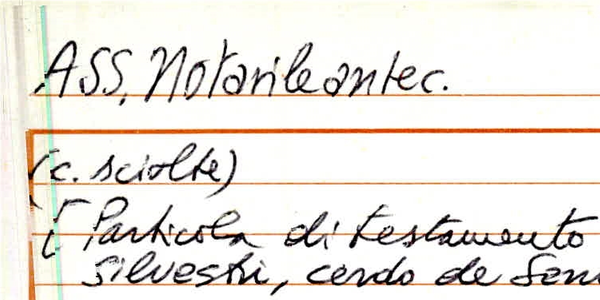 ASS, Notarile antec.
(c. sciolte)
[ Particola di testamento
Silvestri, cerdo de Seni